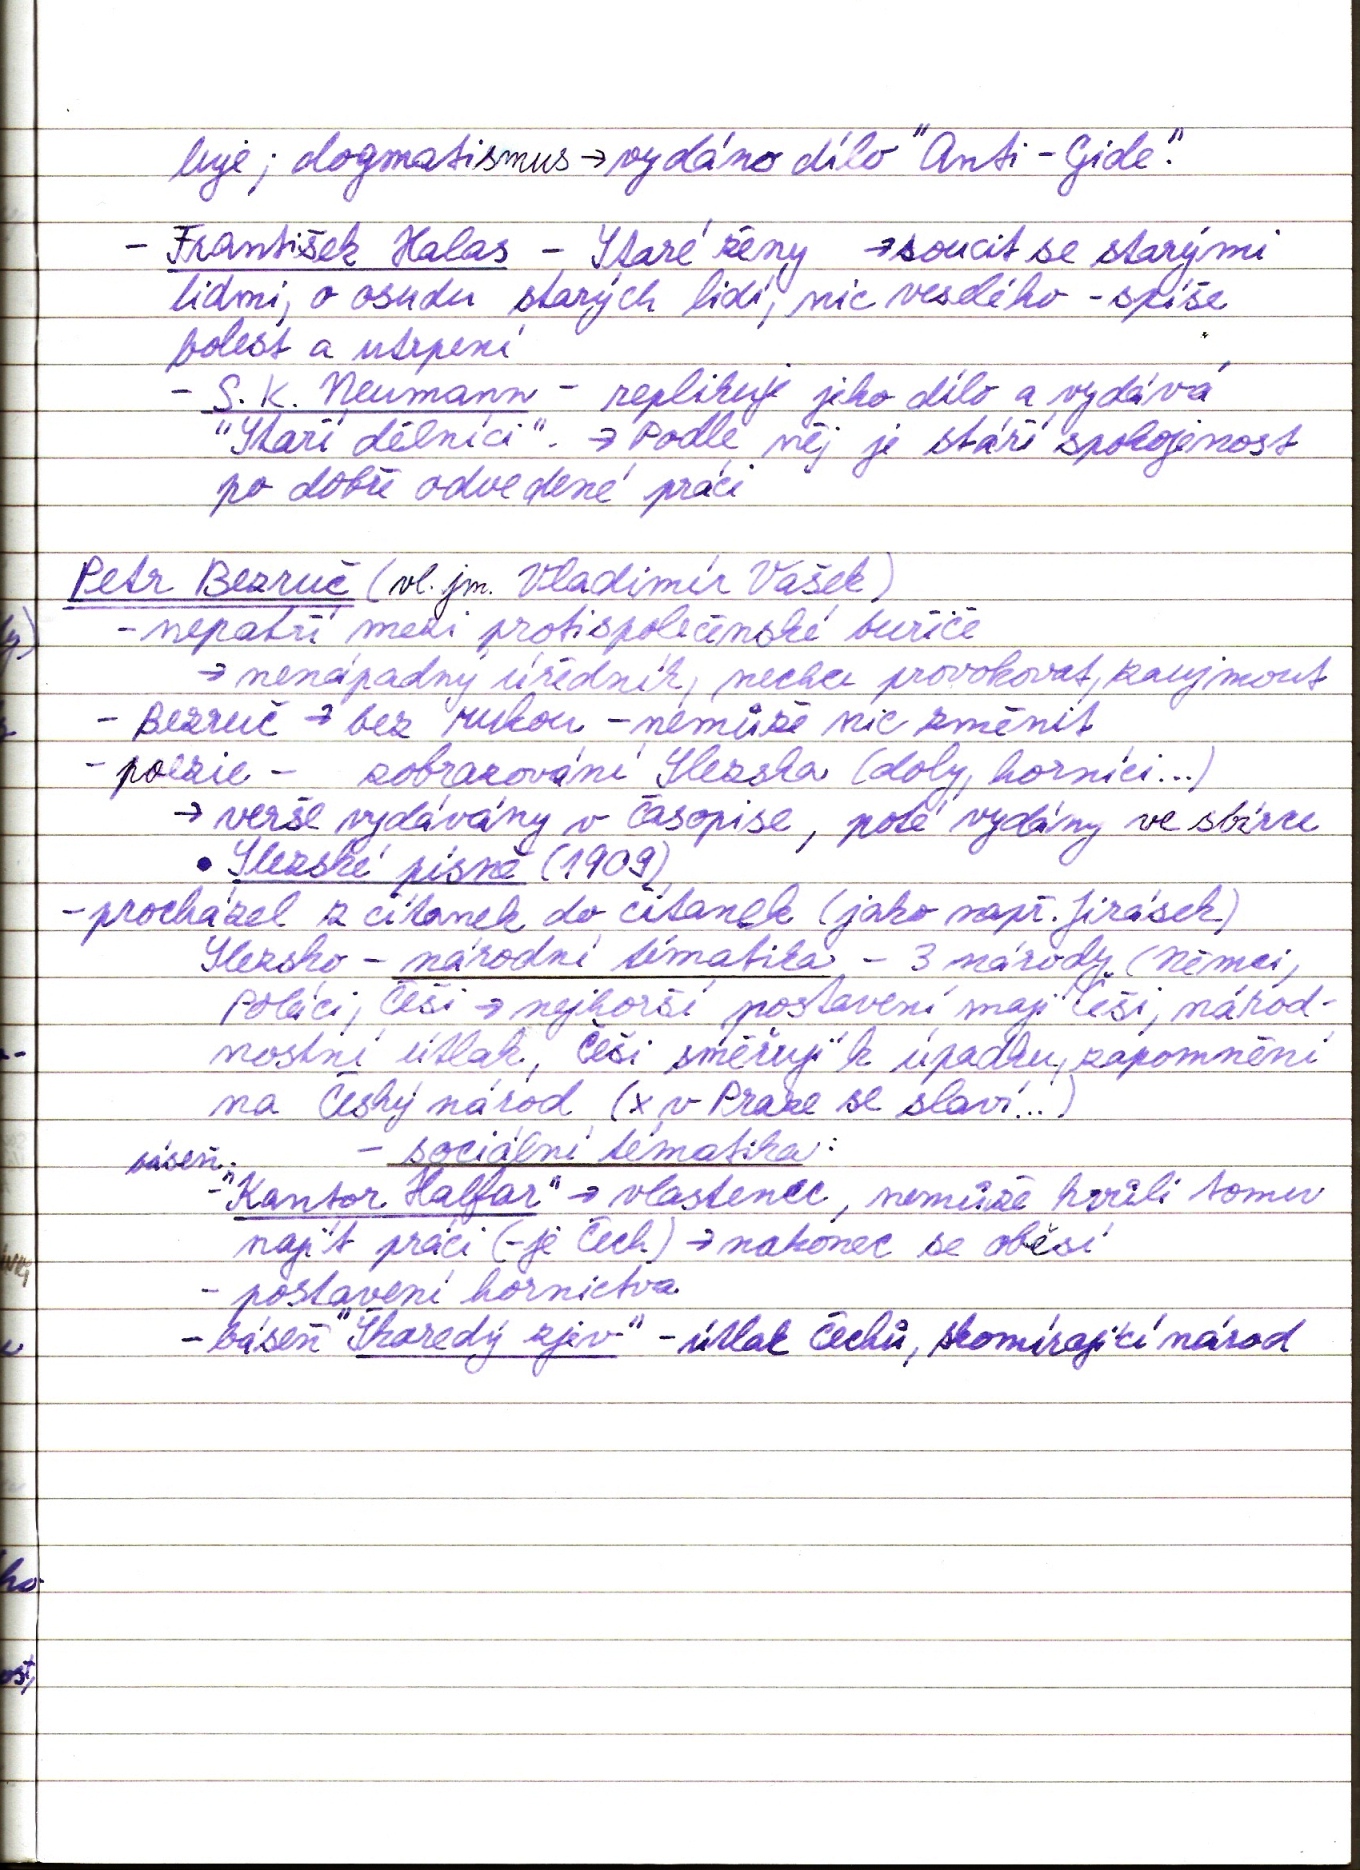 luje; dogmatismus → vydáno dílo "Anti-Gide".
- František Halas - Staré ženy → soucit se starými
lidmi, o osudu starých lidí, nic veselého - spíše
bolest a utrpení
- S. K. Neumann - replikuje jeho dílo a vydává
"Staří dělníci". → Podle něj je stáří spokojenost
po dobře odvedené práci
Petr Bezruč (vl. jm. Vladimír Vašek)
- nepatří mezi protispolečenské buřiče
→ nenápadný úředník, nechce provokovat, zaujmout
- Bezruč → bez rukou - nemůže nic změnit
- poezie - zobrazování Slezska (doly, horníci...)
→ verše vydávány v časopise, poté vydány ve sbírce
• Slezské písně (1909)
- procházel z čítanek do čítanek (jako např. Jirásek)
Slezsko - národní tématika - 3 národy (Němci,
Poláci, Češi → nejhorší postavení mají Češi, národ-
nostní útlak, Češi směřují k úpadku, zapomnění
na Český národ (x v Praze se slaví...)
- sociální tématika:
báseň:
- "Kantor Halfar" → vlastenec, nemůže kvůli tomu
najít práci (- je Čech) → nakonec se oběsí
- postavení hornictva
- báseň "Škaredý zjev" - útlak Čechů, skomírající národ